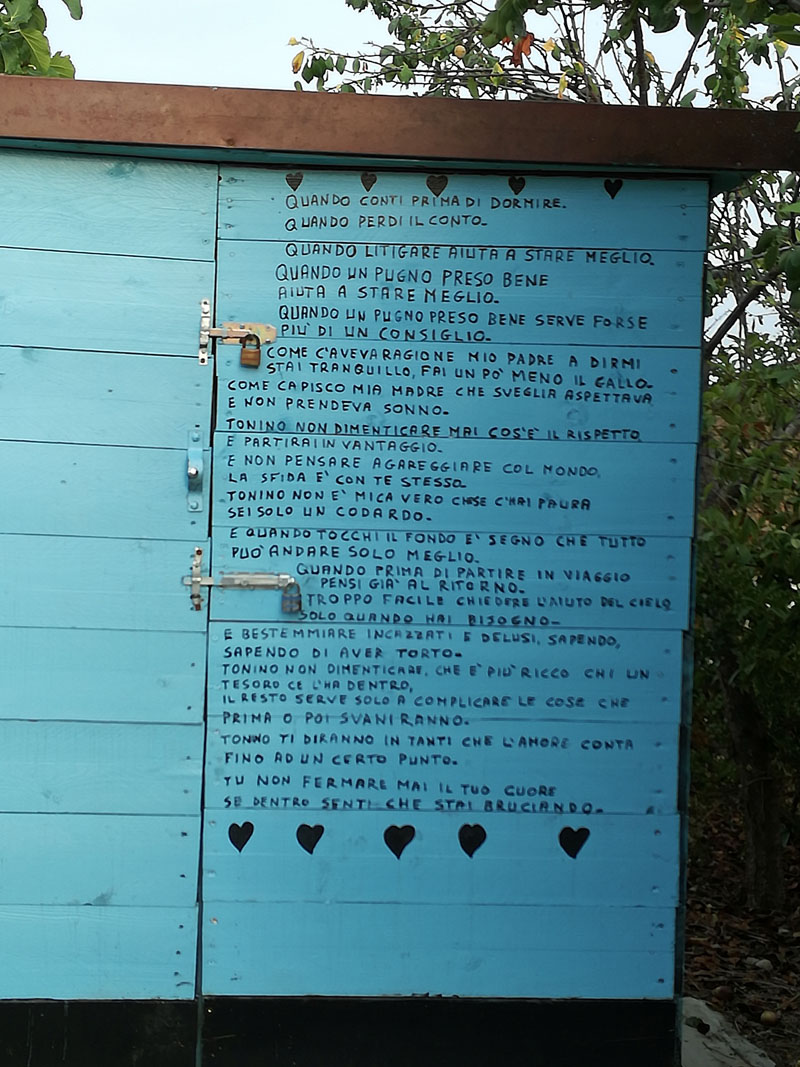 QUANDO CONTI PRIMA DI DORMIRE.
QUANDO PERDI IL CONTO.
QUANDO LITIGARE AIUTA A STARE MEGLIO.
QUANDO UN PUGNO PRESO BENE
AIUTA A STARE MEGLIO.
QUANDO UN PUGNO PRESO BENE SERVE FORSE
PIU' DI UN CONSIGLIO.
COME C'AVEVA RAGIONE MIO PADRE A DIRMI
STAI TRANQUILLO, FAI UN PO' MENO IL GALLO.
COME CAPISCO MIA MADRE CHE SVEGLIA ASPETTAVA
E NON PRENDEVA SONNO.
TONINO NON DIMENTICARE MAI COS'E' IL RISPETTO
E PARTIRAI IN VANTAGGIO.
E NON PENSARE A GAREGGIARE COL MONDO,
LA SFIDA E' CON TE STESSO.
TONINO NON E' MICA VERO CHE SE C'HAI PAURA
SEI SOLO UN CODARDO.
E QUANDO TOCCHI IL FONDO E' SEGNO CHE TUTTO
PUO' ANDARE SOLO MEGLIO.
QUANDO PRIMA DI PARTIRE IN VIAGGIO
PENSI GIA' AL RITORNO.
TROPPO FACILE CHIEDERE L'AIUTO DEL CIELO
SOLO QUANDO HAI BISOGNO.
E BESTEMMIARE INCAZZATI E DELUSI, SAPENDO,
SAPENDO DI AVER TORTO.
TONINO NON DIMENTICARE, CHE E' PIU' RICCO CHI UN
TESORO CE L'HA DENTRO,
IL RESTO SERVE SOLO A COMPLICARE LE COSE CHE
PRIMA O POI SVANIRANNO.
TONINO TI DIRANNO IN TANTI CHE L'AMORE CONTA
FINO AD UN CERTO PUNTO.
TU NON FERMARE MAI IL TUO CUORE
SE DENTRO SENTI CHE STAI BRUCIANDO.